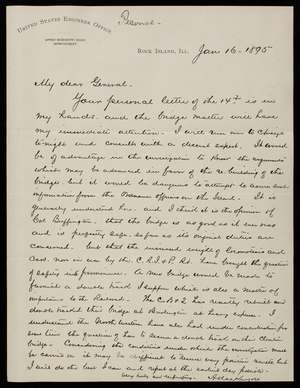 United States Engineer Office,
Upper Mississippi River
Improvement.
Personal.
Rock Island, Ill. Jan 16-1895
My dear General.
Your personal letter of the 14th is in
my hands, and the bridge matter will have
my immediate attention. I will run to Chicago
to-night and consult with a discreet expert. It would
be of advantage in the investigation to know the arguments
which may be advanced in favor of the re-building of the
bridge, but it would be dangerous to attempt to secure such
information from the Ordnance officers on the Island. It is
generally understood here, and I think it is the opinion of
Col Buffington, that the bridge is as good as it ever was
and is perfectly safe, so far as its original duties are
concerned, but that the increased weight of locomotives and
cars now in use by the C. R. I. & P. Rd. have brought the question
of safety into prominence. A new bridge would be made to
furnish a double track I suppose which is also a matter of
importance to the Railroad. The C. B & Q has recently rebuilt and
double tracked their bridge at Burlington at heavy expense. I
understand the North western have also had under consideration for
some time the question of having to secure a double track on their Clinton
bridge. Considering the conditions under which the investigation must
be carried on it may be difficult to secure very precise results but
I will do the best I can and report at the earliest day possible.
Very truly and respectfully,